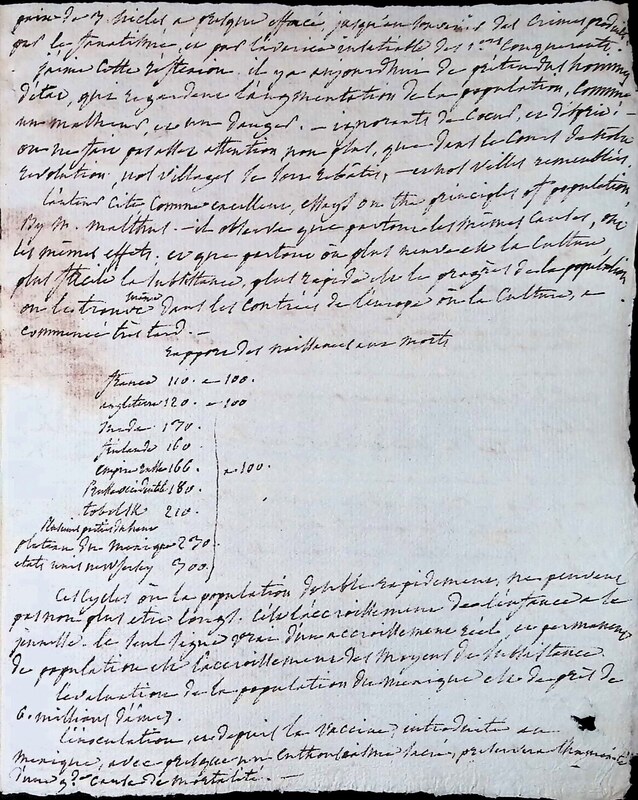 de 3 siècles a presque effacé jusqu'au souvenir des crimes produits
par le fanatisme, et par l'avarice insatiable des 1ers conquerants.
j'aime cette reflexion. il ya aujourdhui de pretendus hommes
d'état, qui regardent l'augmentation de la population, comme
un malheur, et un danger. — ignorants de coeur, et d'esprit! —
on ne fait pas assez attention non plus, que dans le cours de notre
revolution, nos villages se sont rebâtis, — et nos villes remeublées.
l'auteur cite comme excellent, essays on the principles of population
By M. malthus — il observe que partout les mêmes causes, ont
les mêmes effets. et que partout où plus neuve est la culture,
plus facile la subsistance, plus rapide est le progrès de la population
on le trouve même dans les contrées de l'europe où la culture, a
commencé très tard. —
rapport des naissances aux morts
france 110. a 100.
angleterre 120. a 100
suede 130.
finlande 160
empire russe 166.
Prusse occidentale 180. a 100.
tobolsk 210.
plusieurs parties du haut
plateau du mexique 230.
etats unis new jersey 300.
Ces cycles où la population double rapidement, ne peuvent
pas non plus etre longs. C'est l'accroissement de l'enfance a la
le seul signe vrai d'un accroissement réel, et permanent
de population est l'accroissement des moyens de subsistance.
l'evaluation de la population du mexique est de près de
6. millions d'âmes.
l'inoculation, et depuis la vaccine, introduite au
mexique, avec presque un enthousiasme sacré, preservera l'humanité
d'une gde cause de mortalité. —